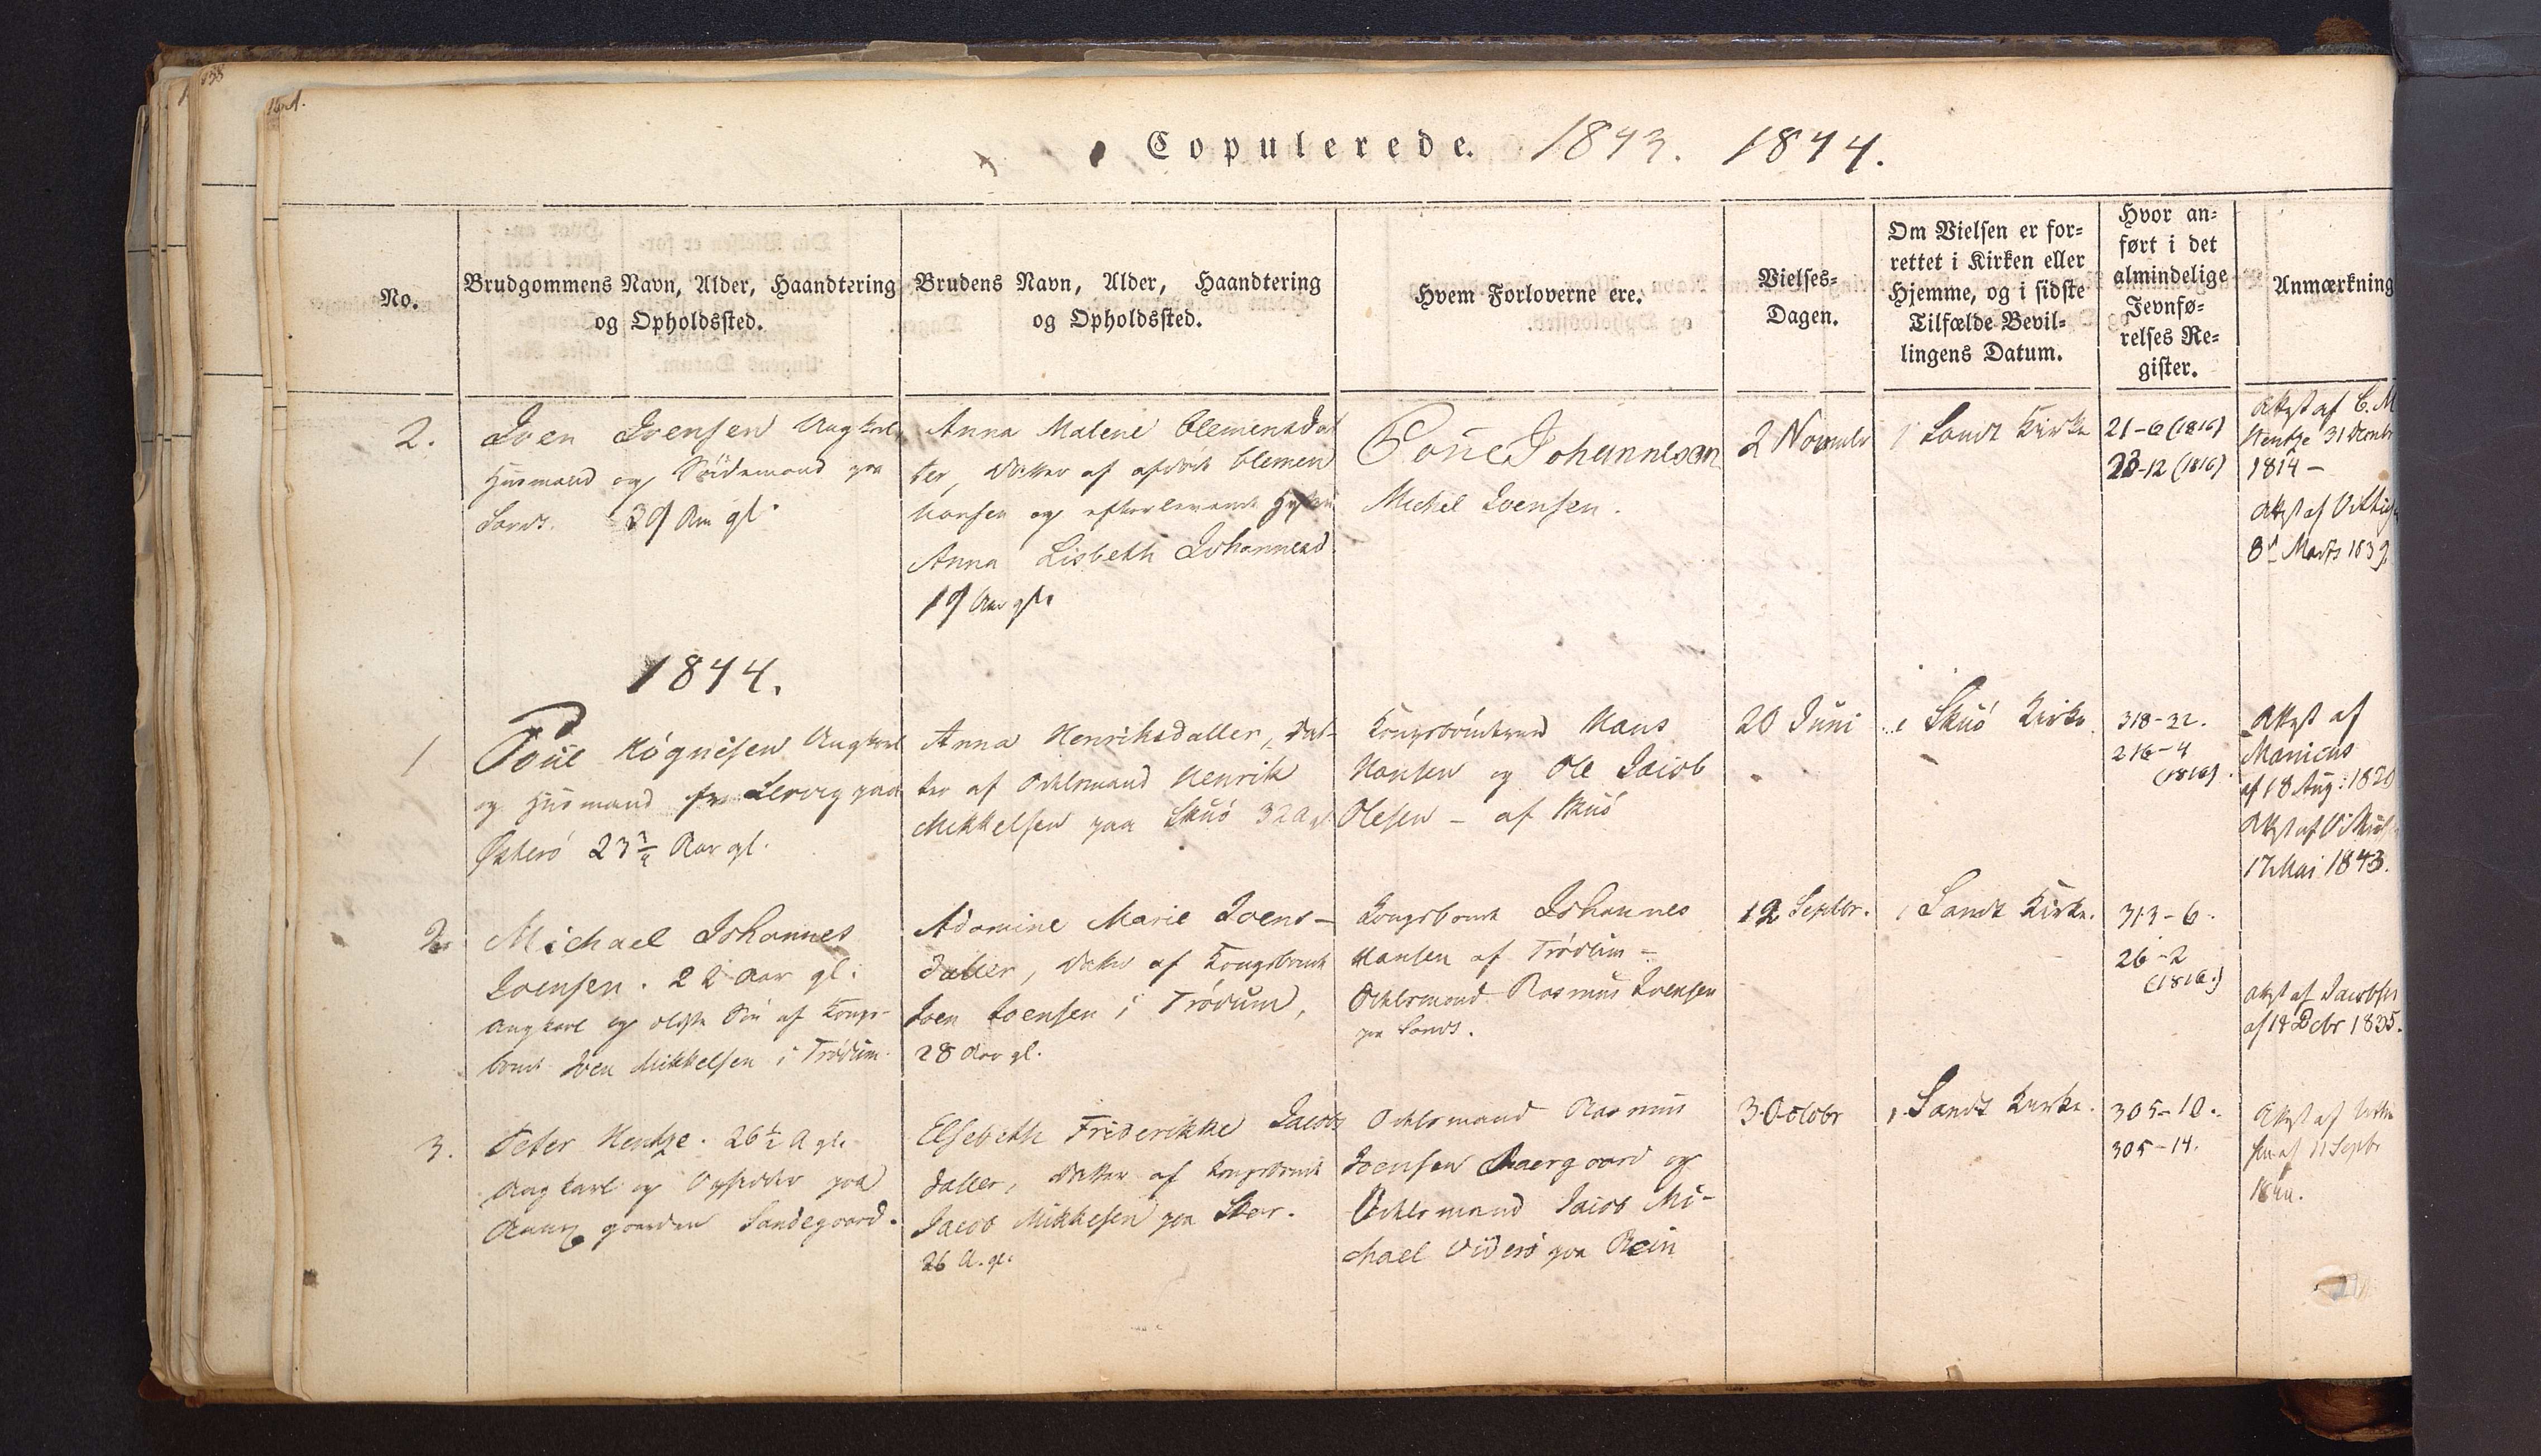 Copulerede. 1843. 1844.
No.
Brudgommens Navn, Alder, Haandtering
og Opholdssted.
Brudens Navn, Alder, Haandtering
og Opholdssted.
Hvem Forloverne ere.
Vielses-
Dagen.
Om Vielsen er for-
rettet i Kirken eller
Hjemme, og i sidste
Tilfælde Bevil-
lingens Datum.
Hvor an-
ført i det
almindelige
Jevnfø-
relses Re-
gister.
Anmærkning
2.
Joen Joensen Ungkarl
Husmand og paa
Sand. 29 Aar gl.
Anna Malene Clemensdat
ter, Datter af afdøde Clemen
Hansen og efterlevende Hustru
Anna Lisbeth Johannesd.
19 Aar gl.
Poul Johannesen
Michel Joensen.
2 Novembr
i Sands Kirke
21-6 (1816)
23-12 (1816)
Attest af C. M
Hentze 31 Decembr
1814 -
Attest af
8d Marts 1839.
1844.
1
Poul Høgnesen Ungkarl
og Husmand fra Lervig paa
Østerö 23 3/4 Aar gl.
Anna Henriksdatter, Dat-
ter af Odelsmand Henrik
Mikkelsen paa Skuö 32 A gl
Kongsbonde Hans
Hansen og Ole Jacob
Olesen - af Skuö
20 Juni
i Skuö Kirke.
318-32.
216-4
(1816).
Attest af
Manicus
af 18 Aug: 1820
Attest af
17 Mai 1843.
2.
Michael Johannes
Joensen. 22 Aar gl.
Ungkarl og ældste Søn af Kongs-
bonde Joen Mikkelsen i Trödum.
Adamine Marie Joens-
datter, Datter af Kongsbonde
Joen Joensen i Trödum,
28 Aar gl.
Kongsbonde Johannes
Hansen af Trödum -
Odelsmand Rasmus Joensen
paa Sand.
12 Septbr.
i Sands Kirke.
313-6.
26-2
(1816.)
Attest af Jacobsen
af 18 Debr 1835.
3.
Peter Hentze. 26 1/2 A gl.
Ungkarl og Opsidder paa
Sandegaard.
Elsebeth Friderikke Jacobs
datter, Datter af Kongsbonde
Jacob Mikkelsen paa Skar.
26 A. gl.
Odelsmand Rasmus
Joensen og
Odelsmand Jacob Mi-
chael Viderö paa
3 Octobr
i Sands Kirke.
305-10.
305-14.
Attest af
11 Septbr